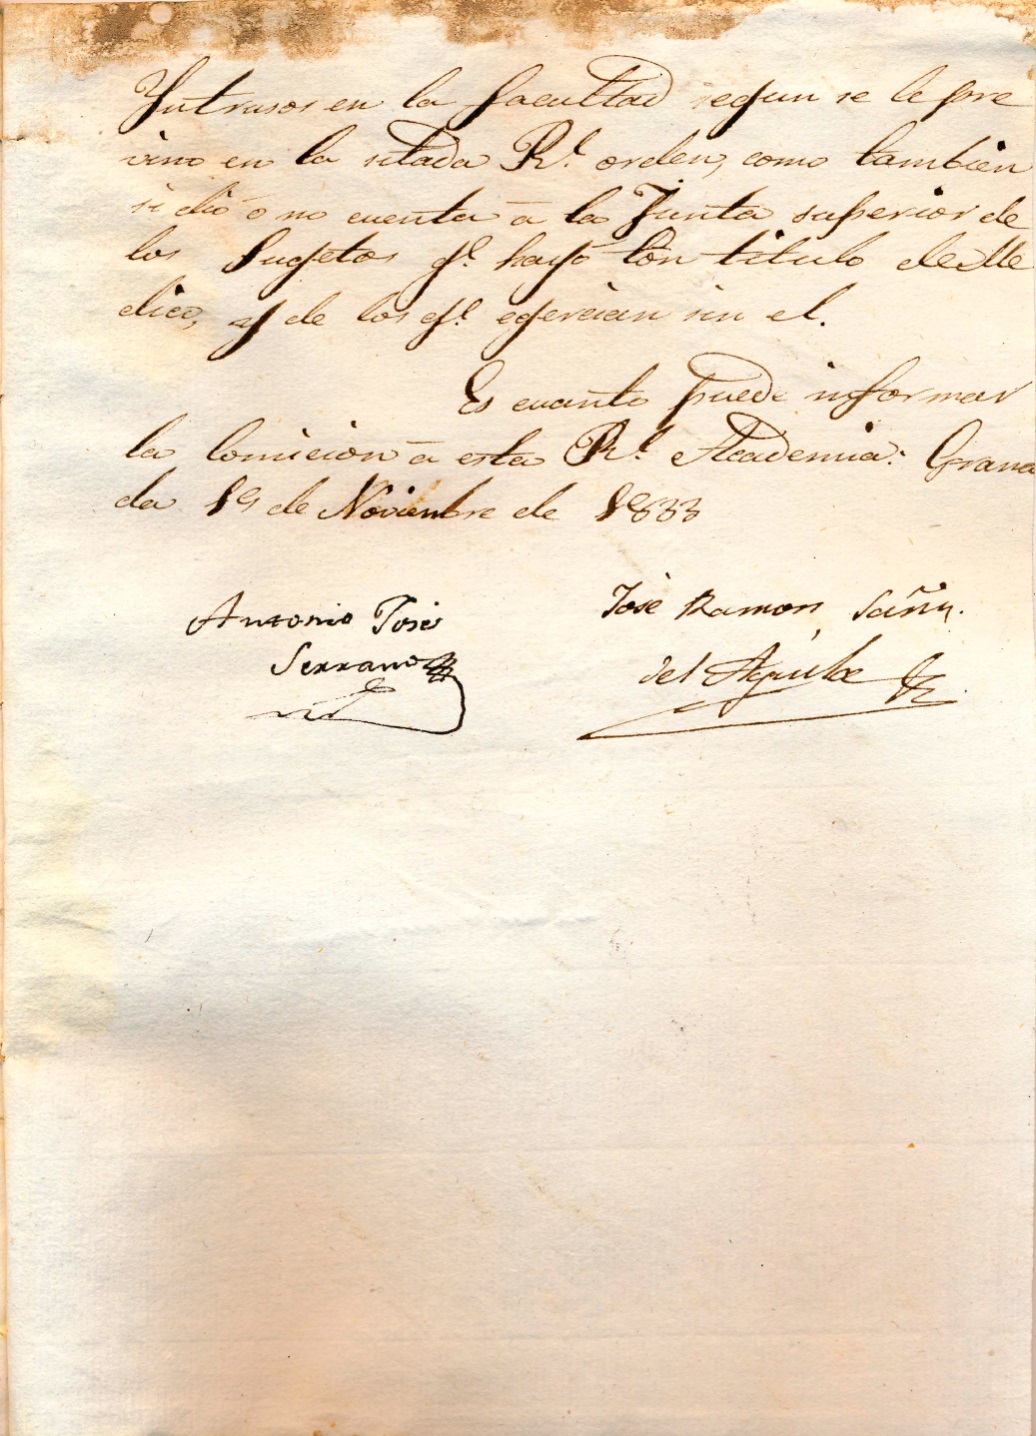 Yntrusos en la facultad segun se le pre
vino en la sitada R.l orden, como tambien
si dió o no cuenta â la Junta superior de
los Sugetos q.e hayó con titulo de Me
dico, y de los q.e egercian sin el.
Es cuanto puede informar
la Comicion â esta R.l Academia. Grana
da 19 de Noviembre de 1833
Antonio José
José Ramon
Serrano
del Aguila